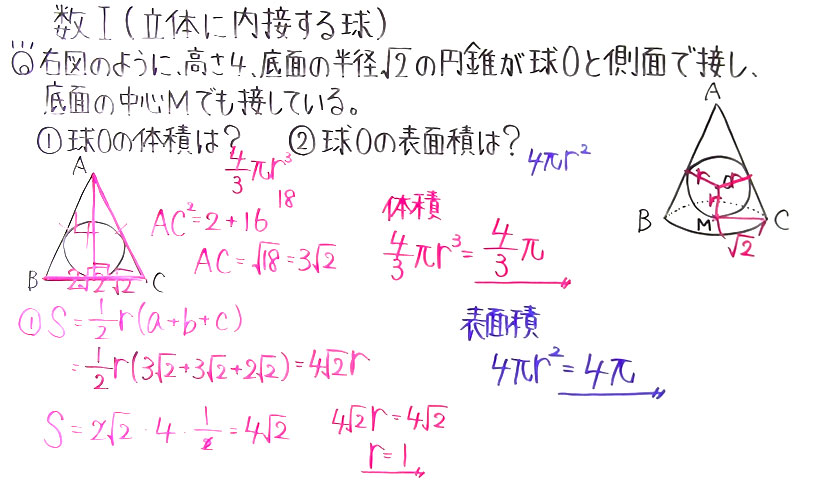 数Ⅰ(立体に内接する球)
⑥右図のように、高さ4、底面の半径√2の円錐が球Oと側面で接し、
底面の中心Mでも接している。
①球Oの体積は? ②球Oの表面積は?
4/3πr³
4πr²
A
B 2√2 √2 C
4
AC²=2+16
18
AC=√18=3√2
体積
4/3πr³=4/3π
A
r r
O
r
B M C
√2
①S=1/2r(a+b+c)
=1/2r(3√2+3√2+2√2)=4√2r
S=2√2・4・1/2=4√2
4√2r=4√2
r=1
表面積
4πr²=4π